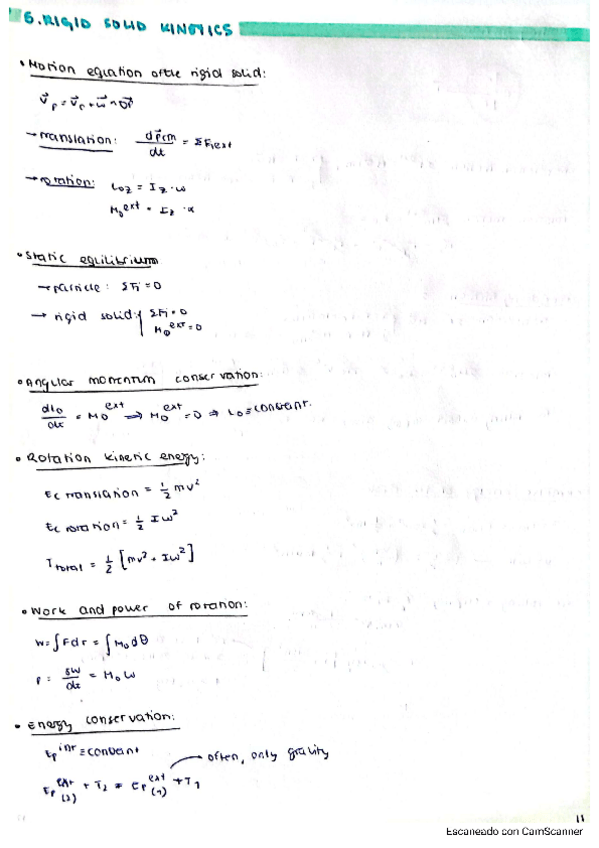 6. RIGID SOLID KINETICS
• Motion equation of the rigid solid:
v⃗p = v⃗o + w⃗ ∧ OP⃗
→ translation: dp⃗cm/dt = ΣFiext
→ rotation: Loz = Iz · ω
Mo^ext = Iz · α
• Static equilibrium
→ particle: ΣFi = 0
→ rigid solid: { ΣFi = 0
Mo^ext = 0
• Angular momentum conservation:
dLo/dt = Mo^ext ⇒ Mo^ext = 0 ⇒ Lo ≡ constant.
• Rotation kinetic energy:
Ec translation = 1/2 mv²
Ec rotation = 1/2 Iω²
Ttotal = 1/2 [mv² + Iω²]
• Work and power of rotation:
W = ∫Fdr = ∫Mo dθ
P = δW/dt = Mo ω
• Energy conservation:
Ep^int ≡ constant
→ often, only gravity
Ep^ext (2) + T2 = Ep^ext (1) + T1
11
Escaneado con CamScanner